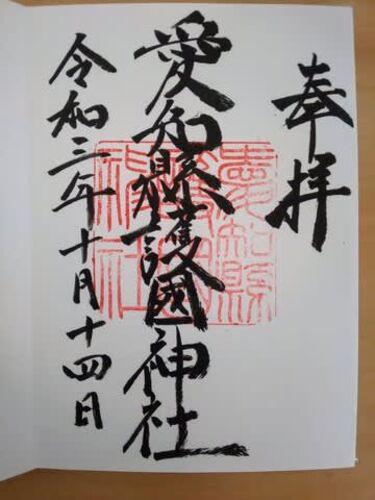 奉拝
愛知縣護國神社
愛知縣護國神社
令和三年十月十四日